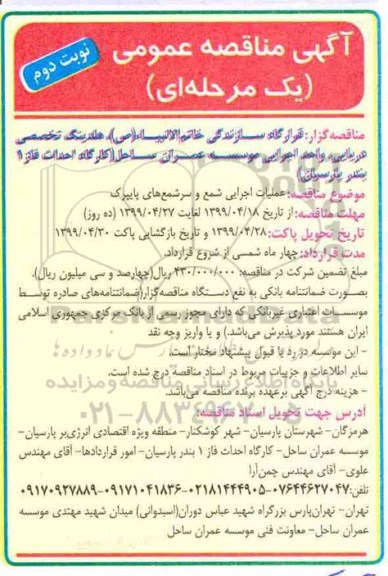 آگهی مناقصه عمومی
(یک مرحله‌ای)
نوبت دوم
مناقصه‌گزار: قرارگاه سازندگی خاتم‌الانبیاء(ص)، هلدینگ تخصصی
دریایی، واحد اجرایی موسسه عمران ساحل(کارگاه احداث فاز۱
بندر پارسیان)
موضوع مناقصه: عملیات اجرایی شمع و سرشمع‌های پایپرک
مهلت مناقصه: از تاریخ ۱۳۹۹/۰۴/۱۸ لغایت ۱۳۹۹/۰۴/۲۷ (ده روز)
تاریخ تحویل پاکت: ۱۳۹۹/۰۴/۲۸ و تاریخ بازگشایی پاکت ۱۳۹۹/۰۴/۳۰
مدت قرارداد: چهار ماه شمسی از شروع قرارداد.
مبلغ تضمین شرکت در مناقصه: ۴۳۰/۰۰۰/۰۰۰ ریال(چهارصد و سی میلیون ریال)،
بصورت ضمانتنامه بانکی به نفع دستگاه مناقصه‌گزار(ضمانتنامه‌های صادره توسط
موسسات اعتباری غیربانکی که دارای مجوز رسمی از بانک مرکزی جمهوری اسلامی
ایران هستند مورد پذیرش می‌باشد.) و یا واریز وجه نقد
- این موسسه در رد یا قبول پیشنهاد مختار است.
سایر اطلاعات و جزییات مربوط در اسناد مناقصه درج شده است.
- هزینه درج آگهی برعهده برنده مناقصه می‌باشد.
پایگاه اطلاع رسانی مناقصه و مزایده
۰۲۱-۸۸۳۴۹۶۷۰
آدرس جهت تحویل اسناد مناقصه:
هرمزگان- شهرستان پارسیان- شهر کوشکنار- منطقه ویژه اقتصادی انرژی‌بر پارسیان-
موسسه عمران ساحل- کارگاه احداث فاز ۱ بندر پارسیان- امور قراردادها- آقای مهندس
علوی- آقای مهندس چمن‌آرا
تلفن: ۰۷۶۴۴۶۲۷۰۴۷-۰۲۱۸۱۴۴۴۹۰۵-۰۹۱۷۱۰۴۱۸۳۶-۰۹۱۷۰۹۲۷۸۸۹
تهران- تهران‌پارس بزرگراه شهید عباس دوران(اسیدوانی) میدان شهید مهتدی موسسه
عمران ساحل- معاونت فنی موسسه عمران ساحل